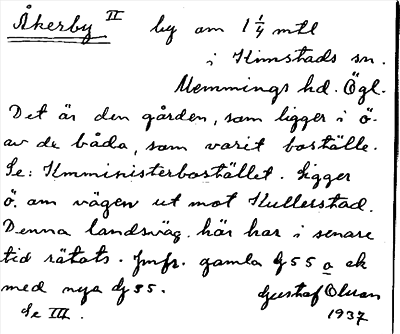 Åkerby II by om 1 1/4 mtl
i Kimstads sn.
Memmings hd. Ögl.
Det är den gården, som ligger i ö.
av de båda, som varit boställe.
Se: Kmministerbostället. Ligger
ö. om vägen ut mot Kullerstad.
Denna landsväg här har i senare
tid rätats. Jmfr. gamla G 55 a ek
med nya G 55.
Gustaf Olsson
Se III. 1937